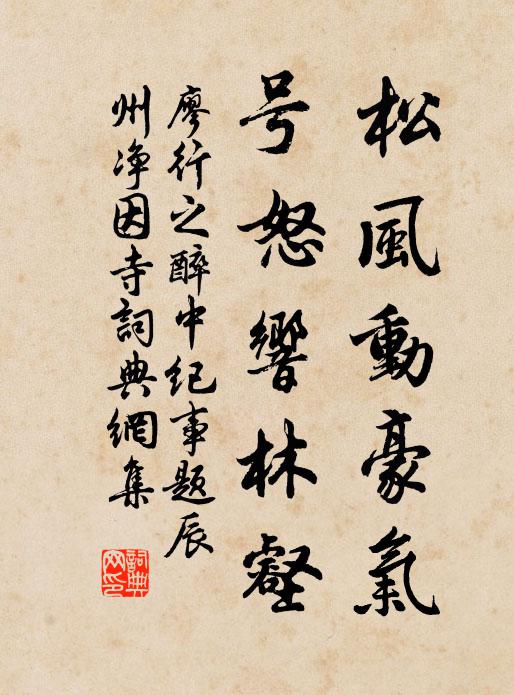 松風動豪氣
号怒響林壑
廖行之醉中纪事题辰
州净因寺詞典網集
詞典网印